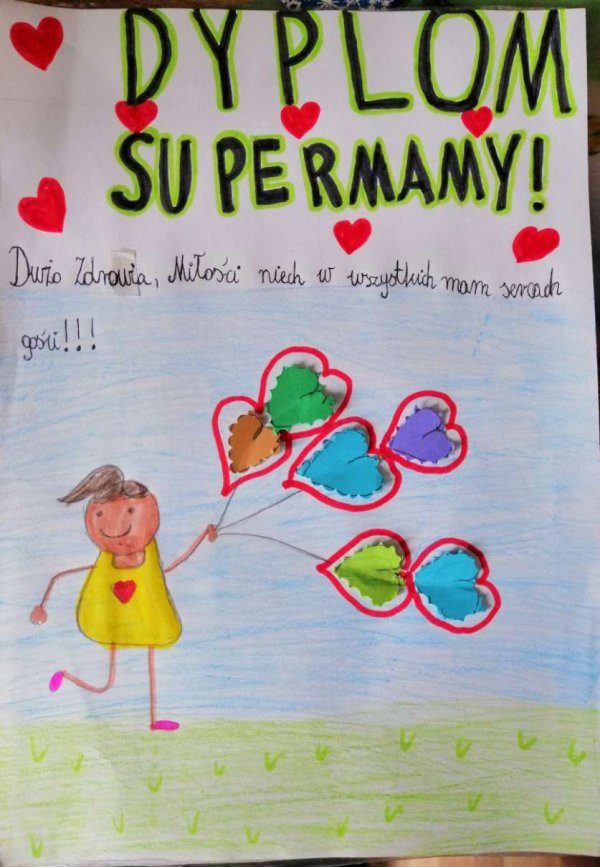 DYPLOM
SUPERMAMY!
Dużo Zdrowia, Miłości niech w wszystkich mam sercach
gości!!!